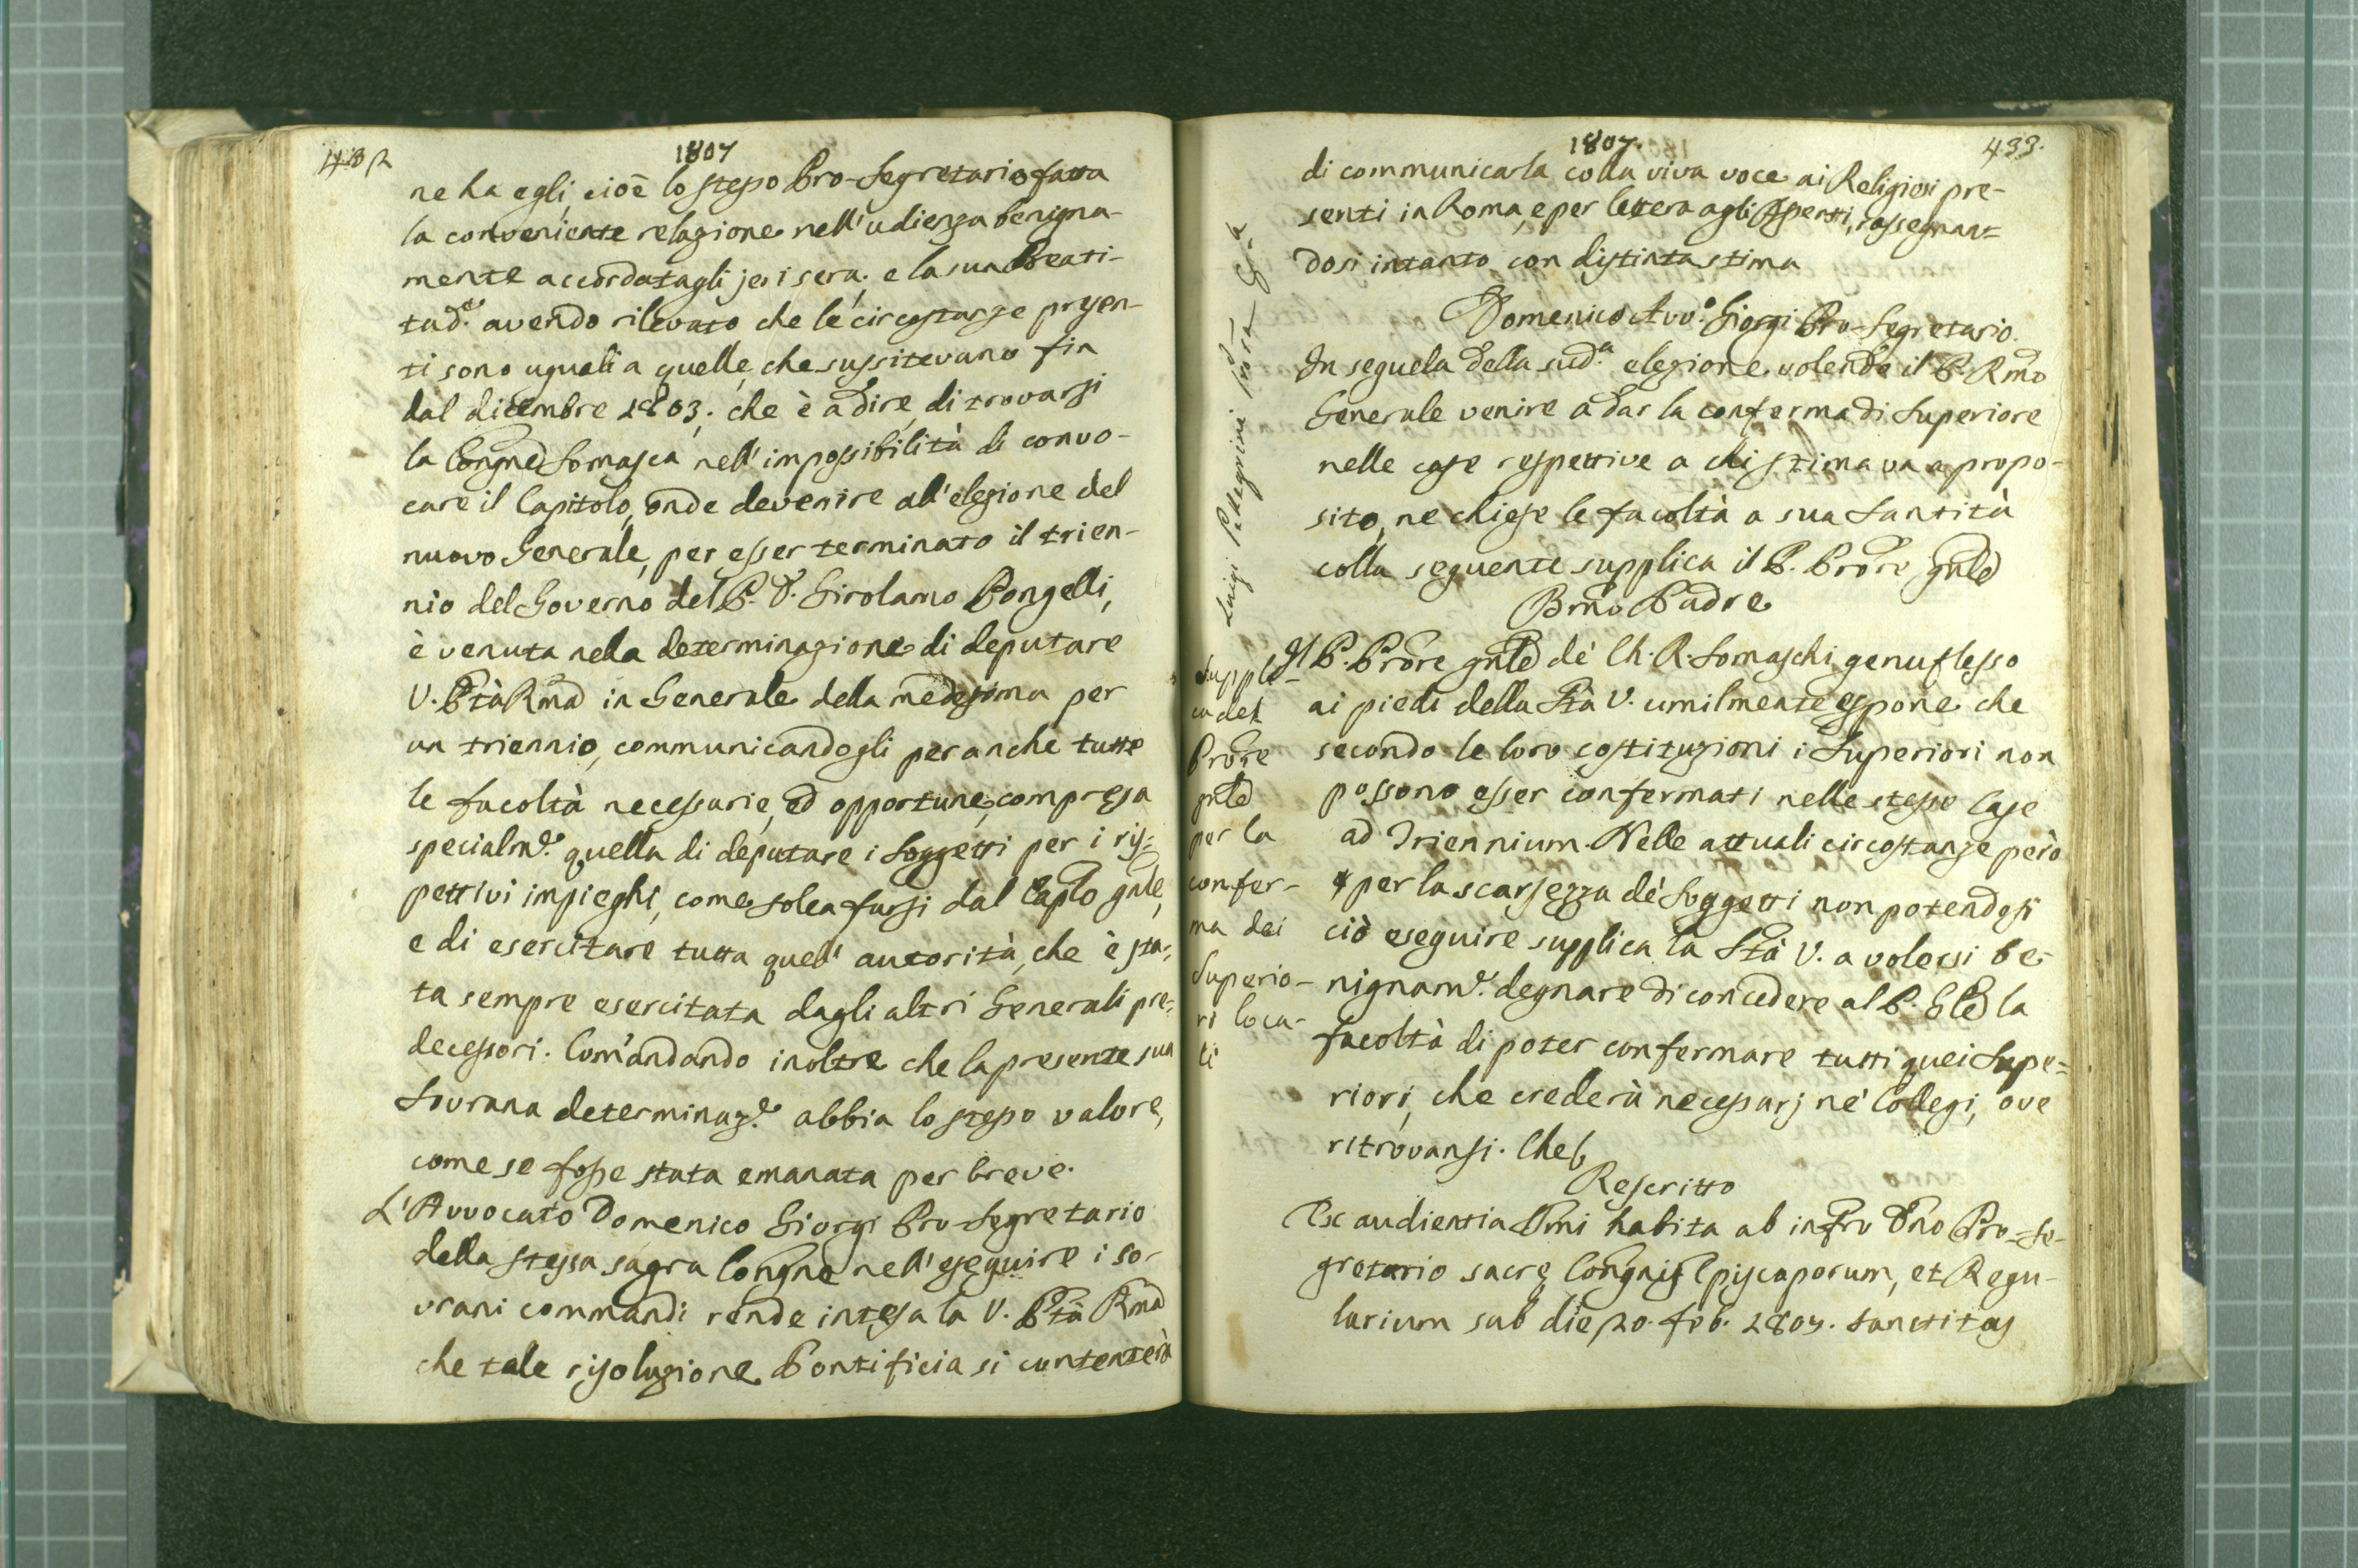 432
1807
ne ha egli, cioè lo stesso Pro-Segretario fatta
la conveniente relazione nell'udienza benigna-
mente accordatagli jeri sera; e la sua Beati-
tud.e avendo rilevato che le circostanze presen-
ti sono uguali a quelle, che sussitevano fin
dal dicembre 1803, che è a dire, di trovarsi
la Congne Somasca nell'impossibilità di convo-
care il Capitolo, onde devenire all'elezione del
nuovo Generale, per esser terminato il trien-
nio del Governo del P. D. Girolamo Pongelli,
è venuta nella determinazione di deputare
V. Ptà Rma in Generale della medesima per
un triennio, communicandogli per anche tutte
le facoltà necessarie, ed opportune, compresa
specialm.e quella di deputare i Soggetti per i ris-
pettivi impieghi, come solea farsi dal Caplo gnle,
e di esercitare tutta quell'autorità, che è sta-
ta sempre esercitata dagli altri Generali pre-
decessori. Com'andando inoltre che la presente sua
Sovrana determinaz.e abbia lo stesso valore,
come se fosse stata emanata per breve.
L'Avvocato Domenico Giorgi Pro-Segretario
della stessa sagra Congne nell'eseguire i so-
vrani commandi rende intesa la V. Ptà Rma
che tale risoluzione Pontificia si contenterà
1807.
433.
di communicarla colla viva voce ai Religiosi pre-
senti in Roma, e per lettera agli Assenti, rassegnan=
dosi intanto con distinta stima
Domenico Avv.o Giorgi Pro-Segretario.
In seguela della sud.a elezione volendo il P. Rmo
Generale venire a dar la conferma di Superiore
nelle case respettive a chi stimava a propo-
sito, ne chiese le facoltà a sua Santità
colla seguente supplica il P. Prore gnle
Bmo Padre
Il P. Prore gnle de' Ch. R. Somaschi genuflesso
ai piedi della Stà V. umilmente espone che
secondo le loro costituzioni i Superiori non
possono esser confermati nelle stesse Case
ad Triennium. Nelle attuali circostanze però
per la scarsezza de' Soggetti non potendosi
ciò eseguire supplica la Stà V. a volersi be-
nignam.e degnare di concedere al P. Gle la
facoltà di poter confermare tutti quei Supe=
riori, che crederà necessarj ne' Collegi, ove
ritrovansi. Che
Rescritto
Ex audientia SSmi habita ab infro Dno Pro-Se-
gretario sacre Congnis Episcoporum, et Regu-
larium sub die 20. feb. 1807. Sanctitas
Luigi Pellegrini
Suppli-
ca del
Prore
gnle
per la
confer-
ma dei
Superio-
ri loca-
li